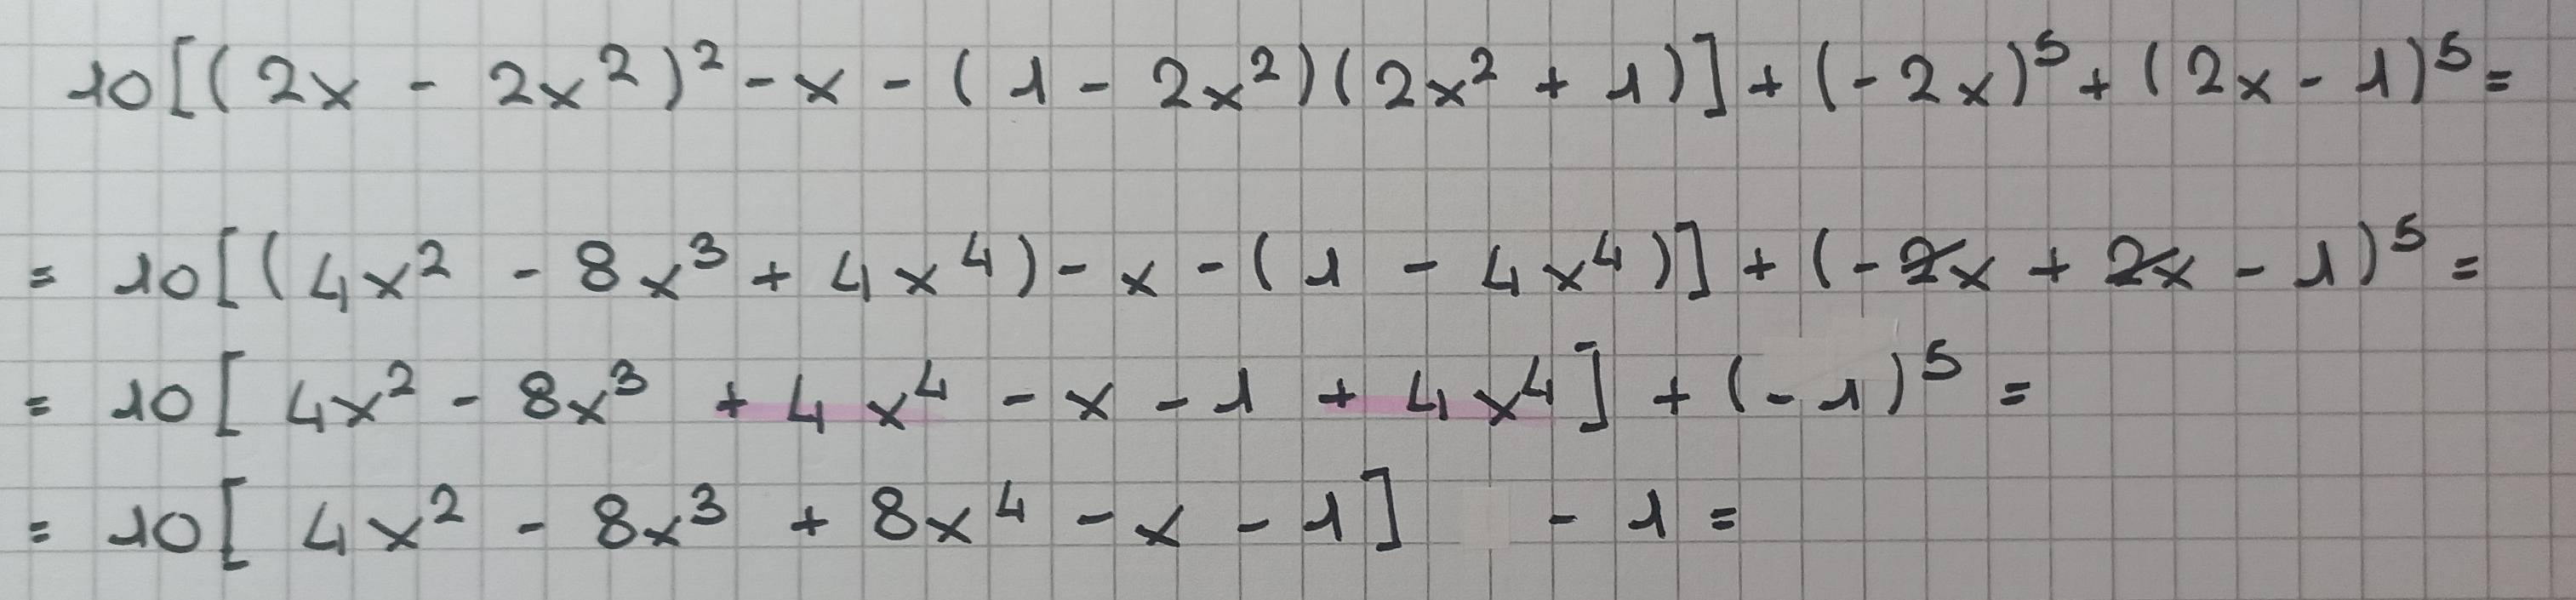 10[(2x - 2x²)² - x - (1 - 2x²)(2x² + 1)] + (-2x)⁵ + (2x - 1)⁵ =
= 10[(4x² - 8x³ + 4x⁴) - x - (1 - 4x⁴)] + (-2x + 2x - 1)⁵ =
= 10[4x² - 8x³ + 4x⁴ - x - 1 + 4x⁴] + (-1)⁵ =
= 10[4x² - 8x³ + 8x⁴ - x - 1] - 1 =